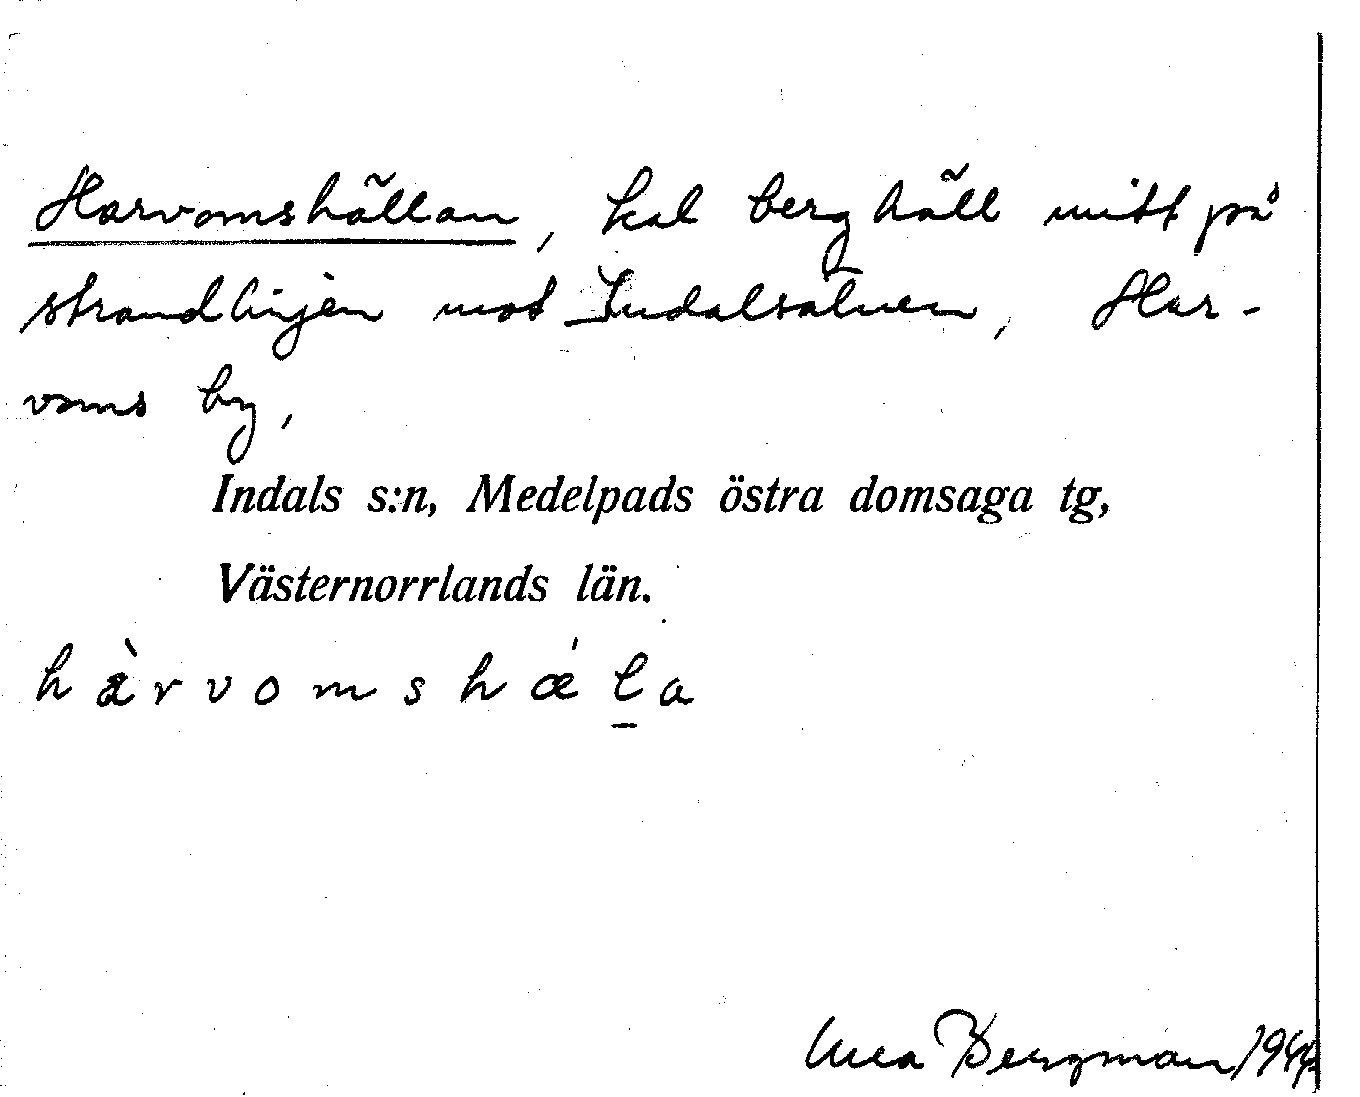 Harvomshällan, kal berghäll mitt på
strandlinjen mot Indalsälven, Har-
voms by,
Indals s:n, Medelpads östra domsaga tg,
Västernorrlands län.
hàrvomshǽḻa
Bergman/1944